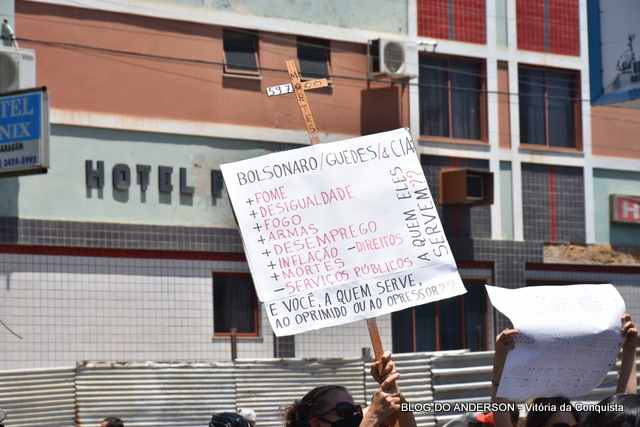 MORTES
597 00
BOLSONARO/GUEDES/& CIA
+ FOME
+ DESIGUALDADE
+ FOGO
+ ARMAS
+ DESEMPREGO
+ INFLAÇÃO - DIREITOS
+ MORTES
- SERVIÇOS PÚBLICOS
A QUEM ELES
SERVEM??
E VOCÊ, A QUEM SERVE,
AO OPRIMIDO OU AO OPRESSOR??
HOTEL
TEL
NIX
3424-5993
H
BLOG DO ANDERSON - Vitória da Conquista